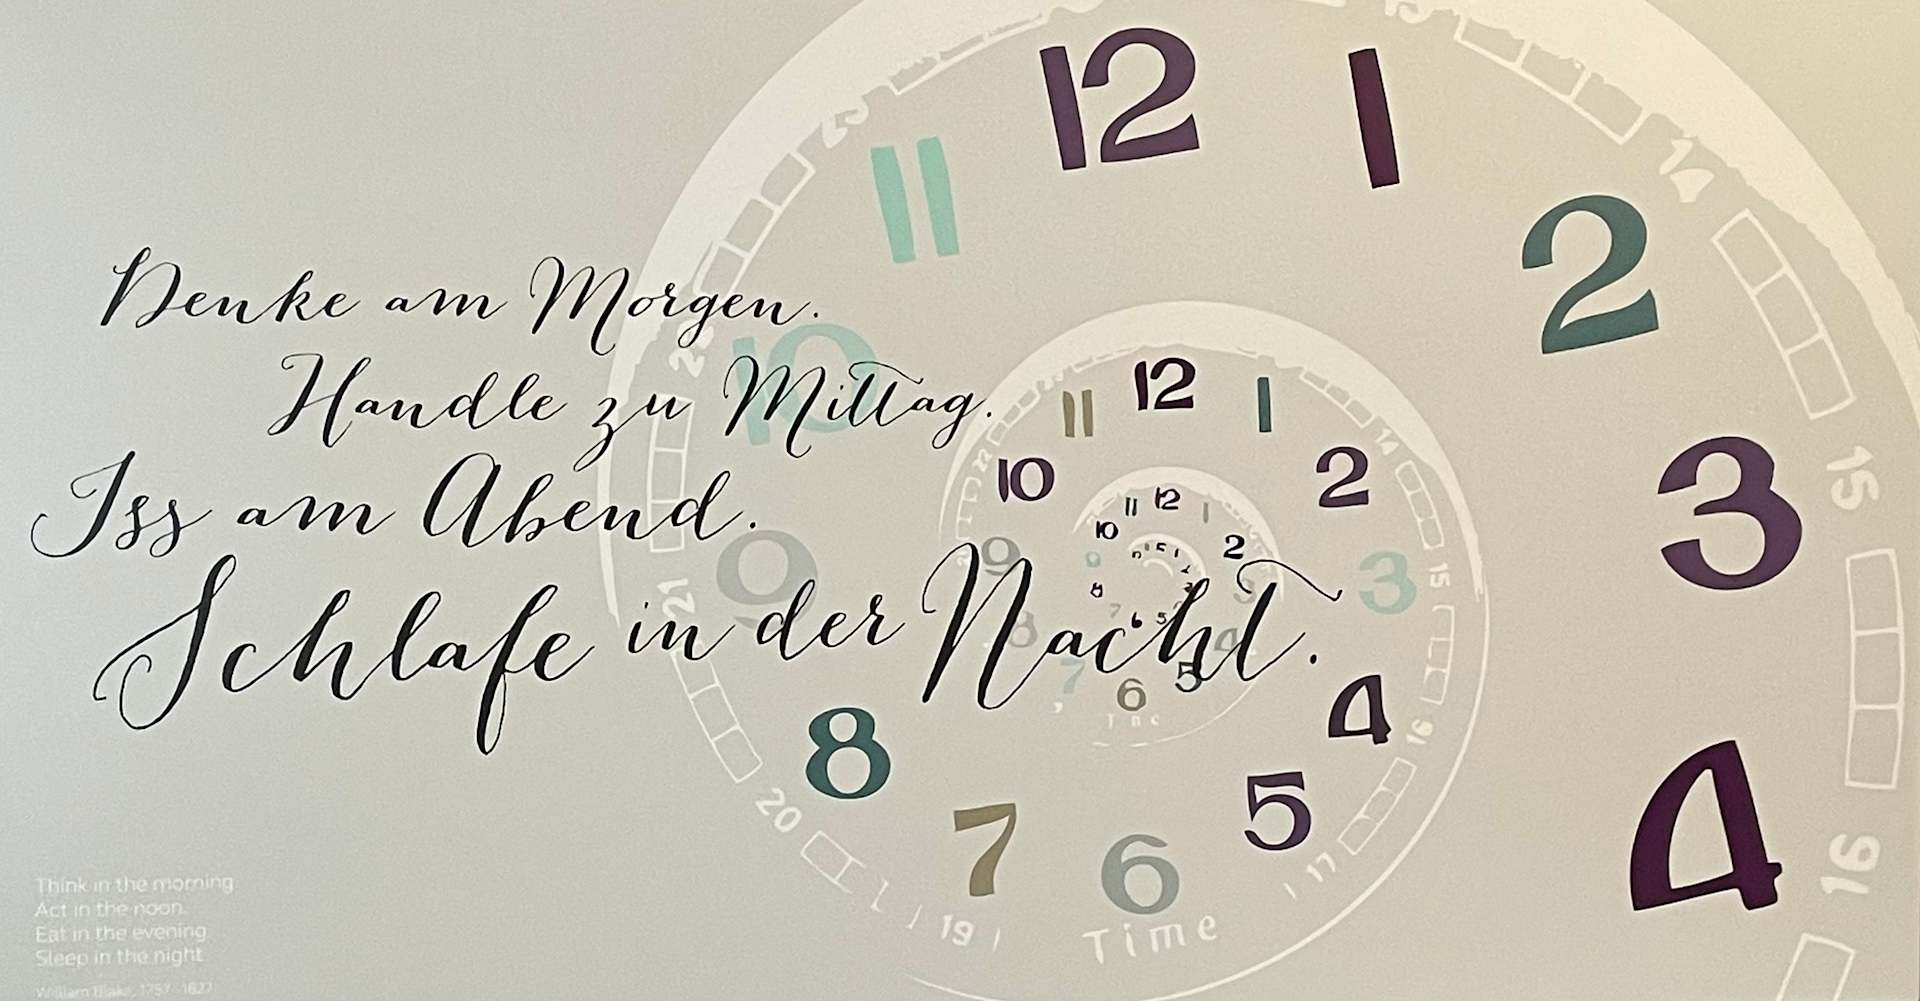 Denke am Morgen.
Handle zu Mittag.
Iss am Abend.
Schlafe in der Nacht.
Think in the morning
Act in the noon.
Eat in the evening
Sleep in the night
William Blake, 1757 - 1827
12
1
2
3
4
8
7
6
5
9
10
11
13
14
15
16
17
19
20
21
23
Time
12
1
2
3
4
5
6
7
8
9
10
11
14
15
16
22
12
1
2
3
4
5
6
7
8
9
10
11